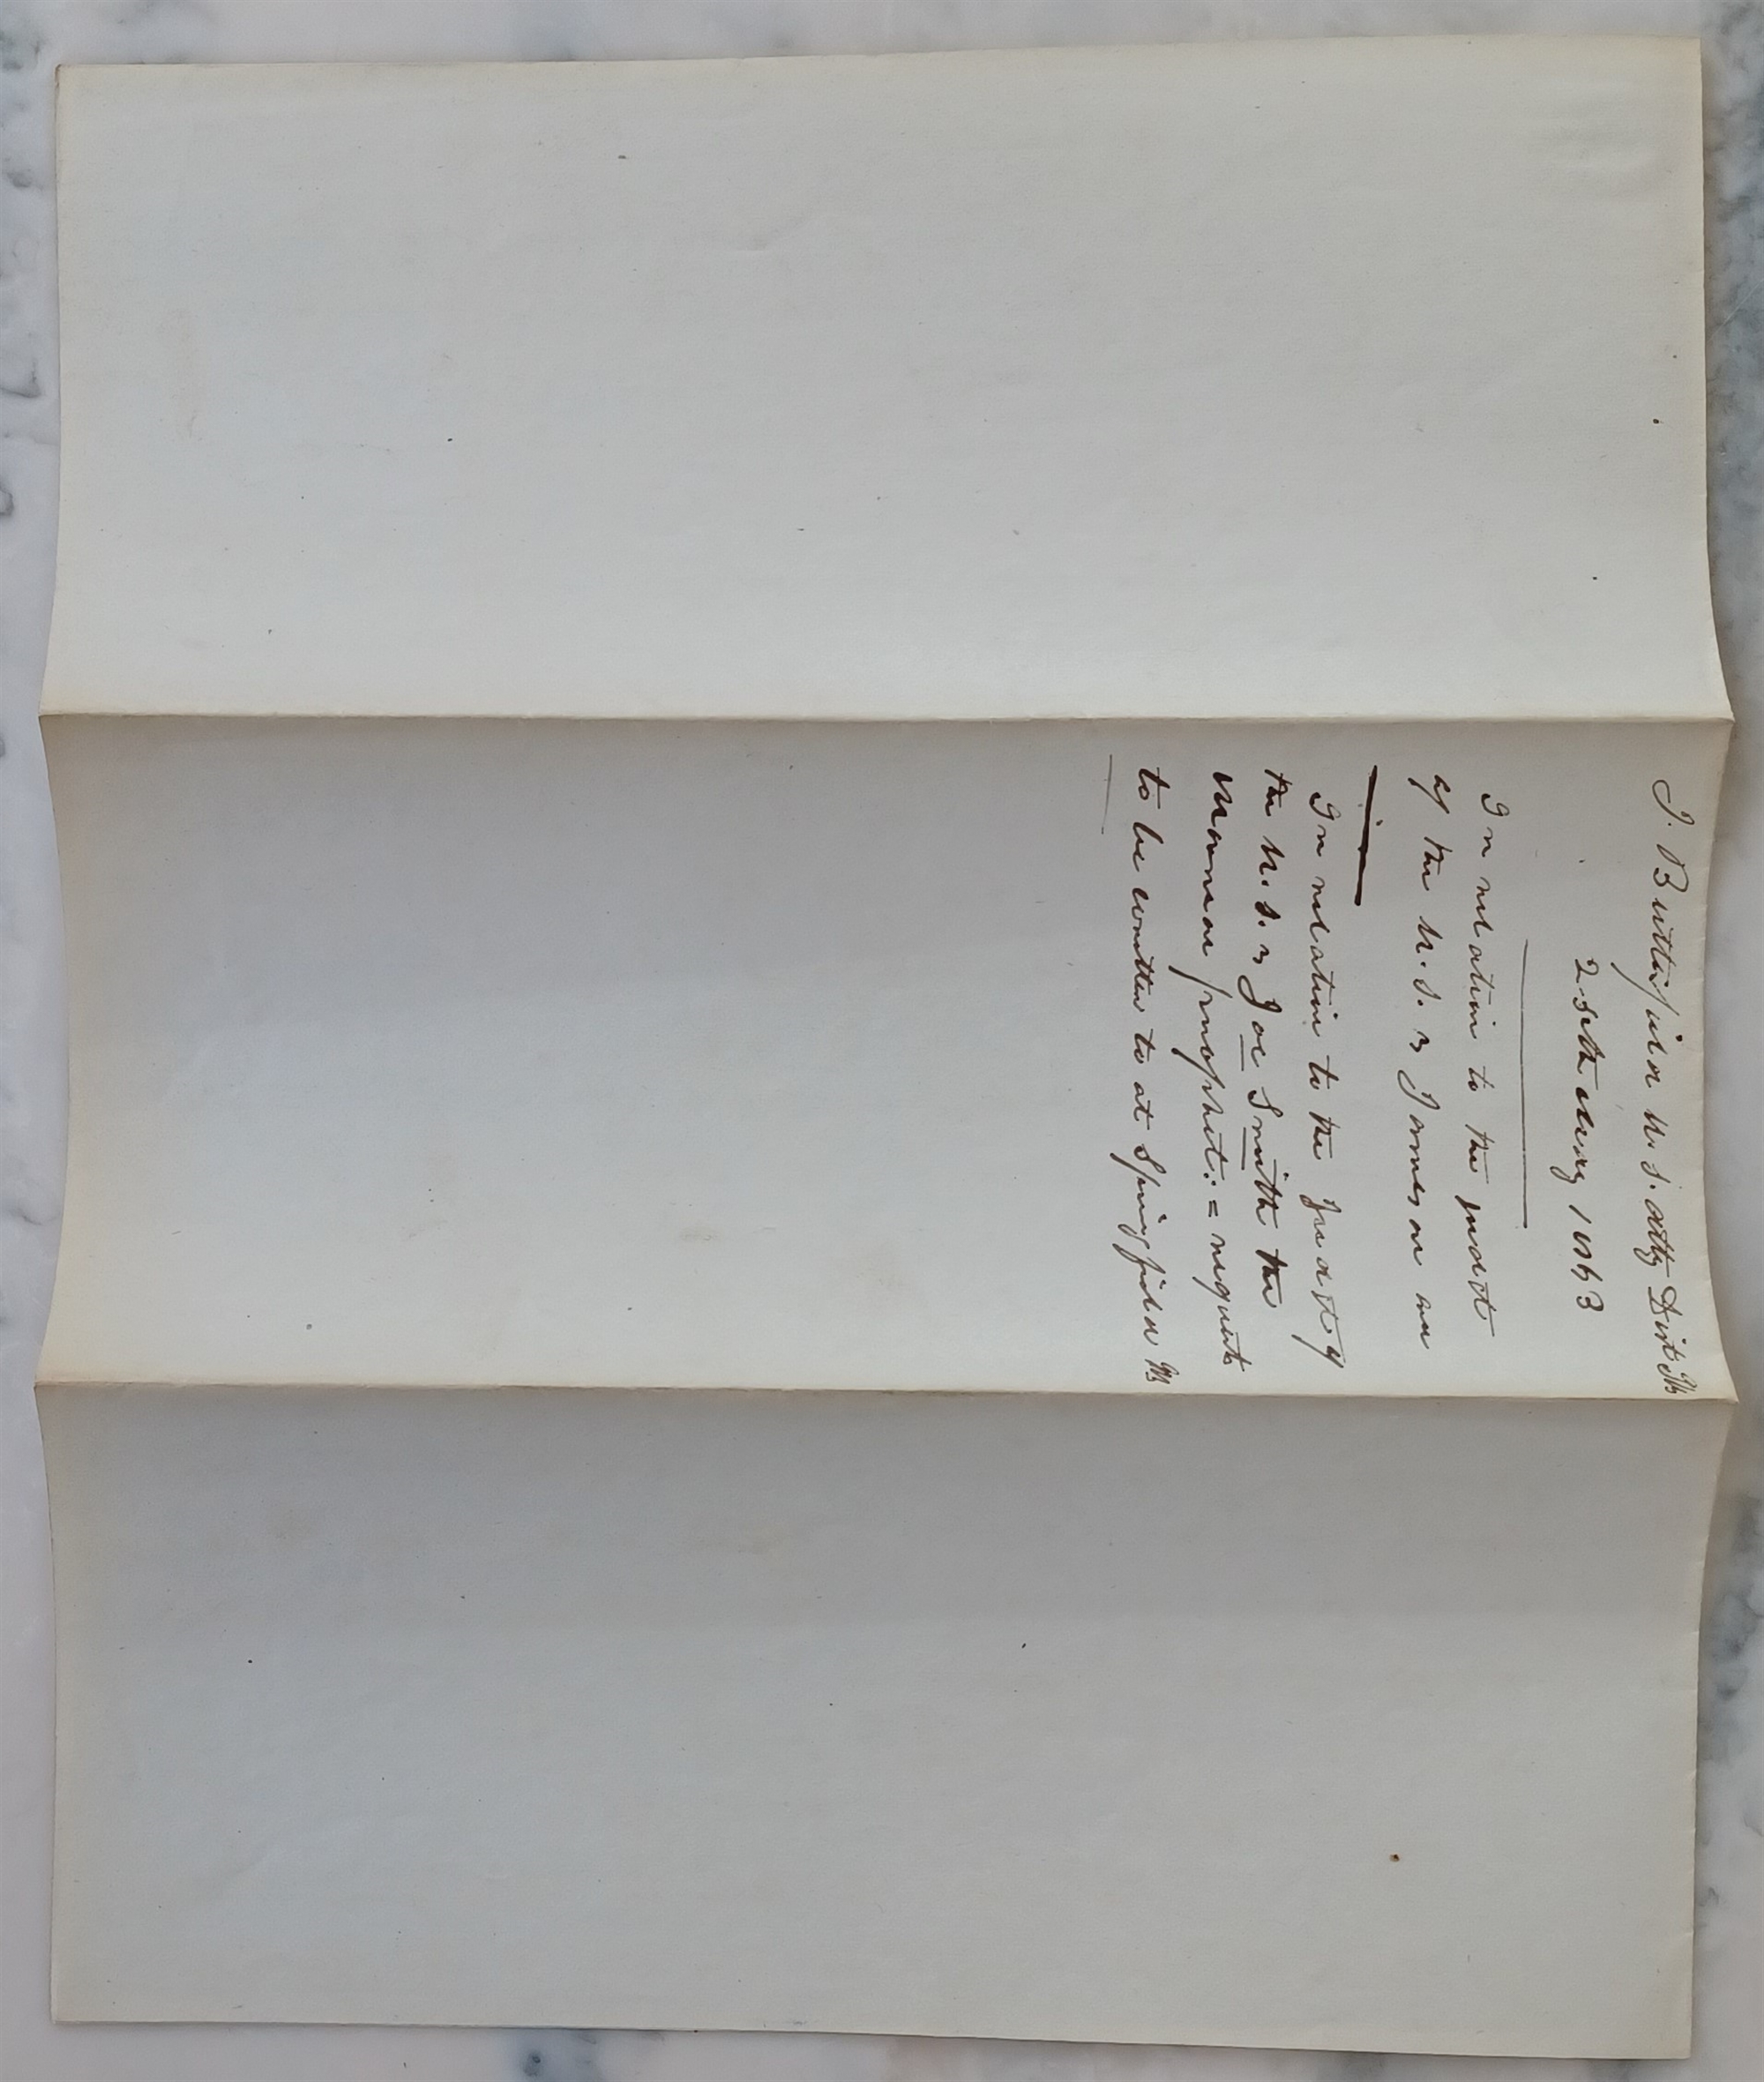 J. Butterfield U.S. atty Dist Ills
25th May 1843
In relation to the judt
of the U.S. vs Jameson and
In relation to the Judt of
the U.S. vs Joe Smith the
Mormon prophet:= requests
to be written to at Springfield Ills